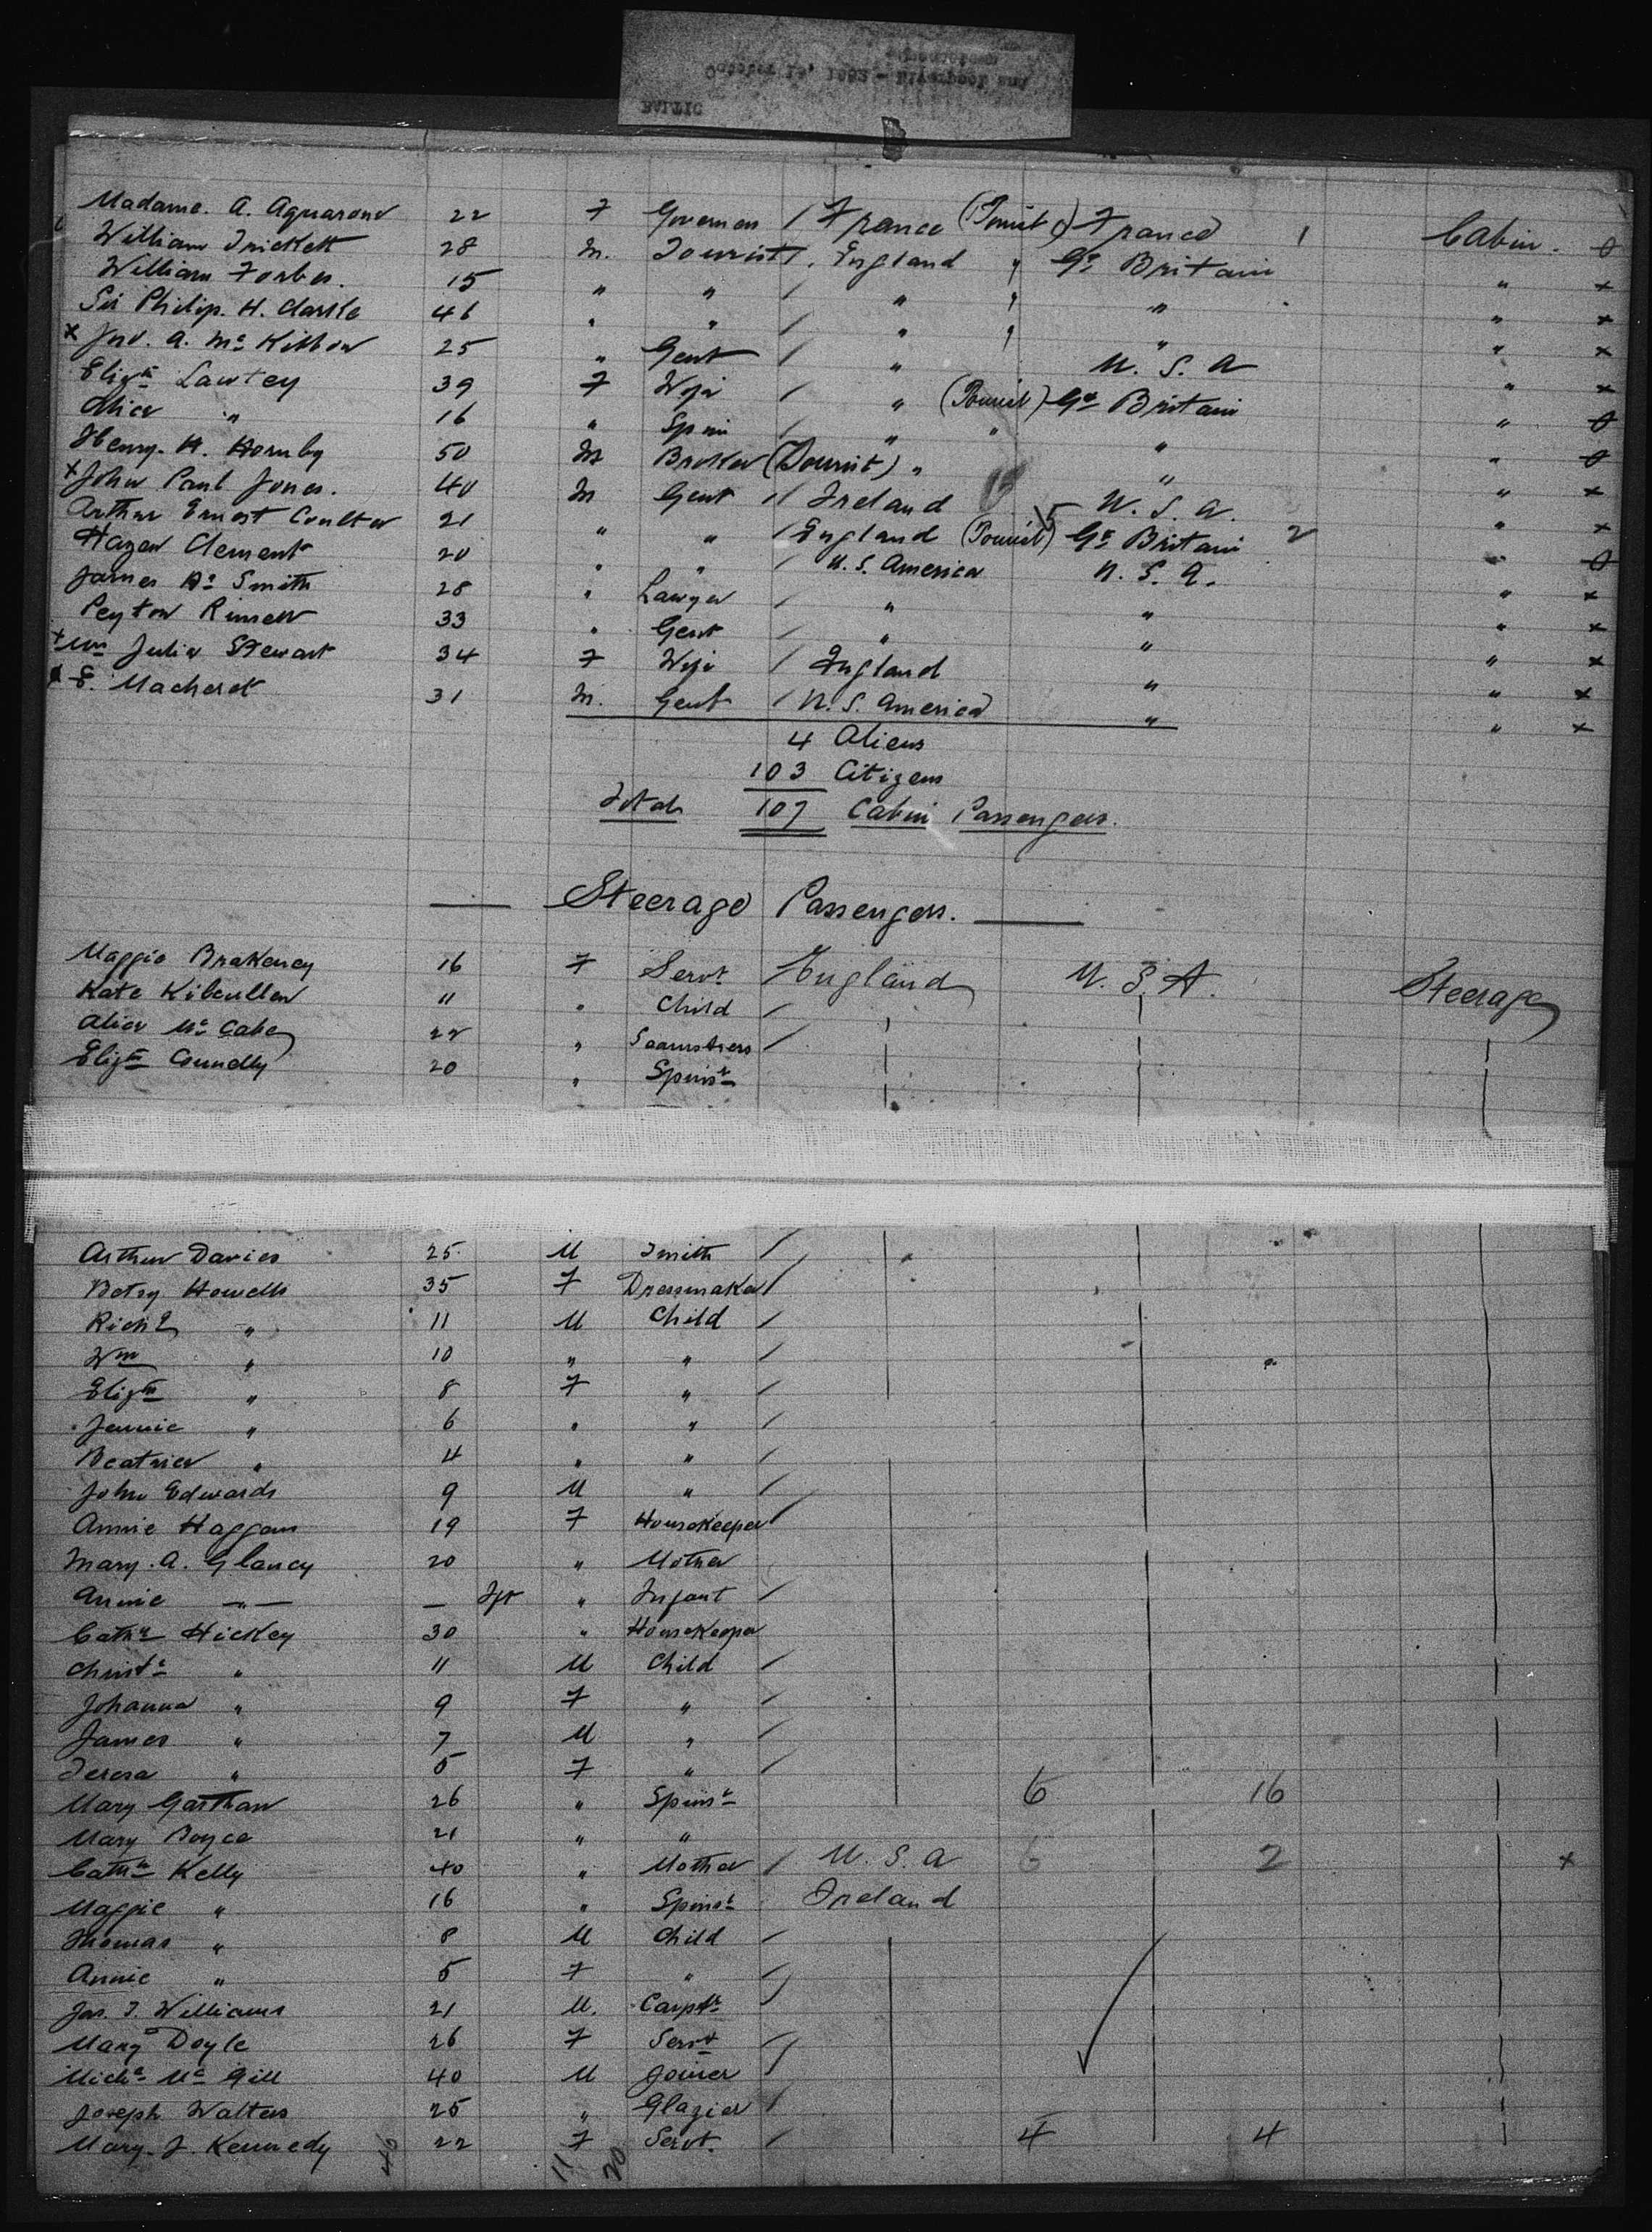 BALTIC
October 14, 1892 - Liverpool and
Queenstown
Madame. A. Aquarone 22 F Governess / France (Tourist) France 1 Cabin. 0
William Trickett 28 M. Tourist / England " Gt Britain " x
William Forbes. 15 " " / " " " " x
Sir Philip. H. Clarke 46 " " / " " " " x
x Jno. A. Mc Kibbon 25 " Gent / " U. S. A " x
Elizth Lawtey 39 F Wife / " (Tourist) Gt Britain " 0
Alice " 16 " Spin / " " " " 0
Henry. H. Hornby 50 M Broker (Tourist) " " " x
x John Paul Jones. 40 M Gent / Ireland U. S. A. " x
Arthur Ernest Coulter 21 " " / England (Tourist) Gt Britain 2 " 0
Hazen Clement 20 " " / U. S. America U. S. A. " x
James Smith 28 " Lawyer / " " " x
Peyton 33 " Gent / " " " x
x Mrs Julia Stewart 34 F Wife / England " " x
E. Macheret 31 M. Gent / U. S. America " " x
4 Aliens
103 Citizens
Total 107 Cabin Passengers.
Steerage Passengers.
Maggie Brakeney 16 F Servt England U. S. A. Steerage
Kate Kilcullen 11 " Child /
Alice Mc Cabe 22 " Seamstress /
Elizth Connelly 20 " Spinsr
Arthur Davies 25 M Smith /
Betsy Howells 35 F Dressmaker /
Richd " 11 M Child /
Wm " 10 " " /
Elizth " 8 F " /
Jennie " 6 " " /
Beatrice " 4 " " /
John Edwards 9 M " /
Annie Haggan 19 F Housekeeper /
Mary. A. Glancy 20 " Mother
Annie — " — — Inft " Infant /
Cathe Hickey 30 " Housekeeper
Christr " 11 M Child /
Johanna " 9 F " /
James " 7 M " /
Teresa " 5 F " /
Mary Garthan 26 " Spinsr 6 16
Mary Boyce 21 " "
Cathe Kelly 40 " Mother / U. S. A 6 2 x
Maggie " 16 " Spinsr Ireland
Thomas " 8 M Child /
Annie " 5 F " /
Jas. T. Williams 21 M. Carptr /
Mary Doyle 26 F Servt /
Michl Mc Gill 40 M Joiner /
Joseph Walters 25 " Glazier /
Mary. J. Kennedy 22 F Servt. / 4 4
46 11 20